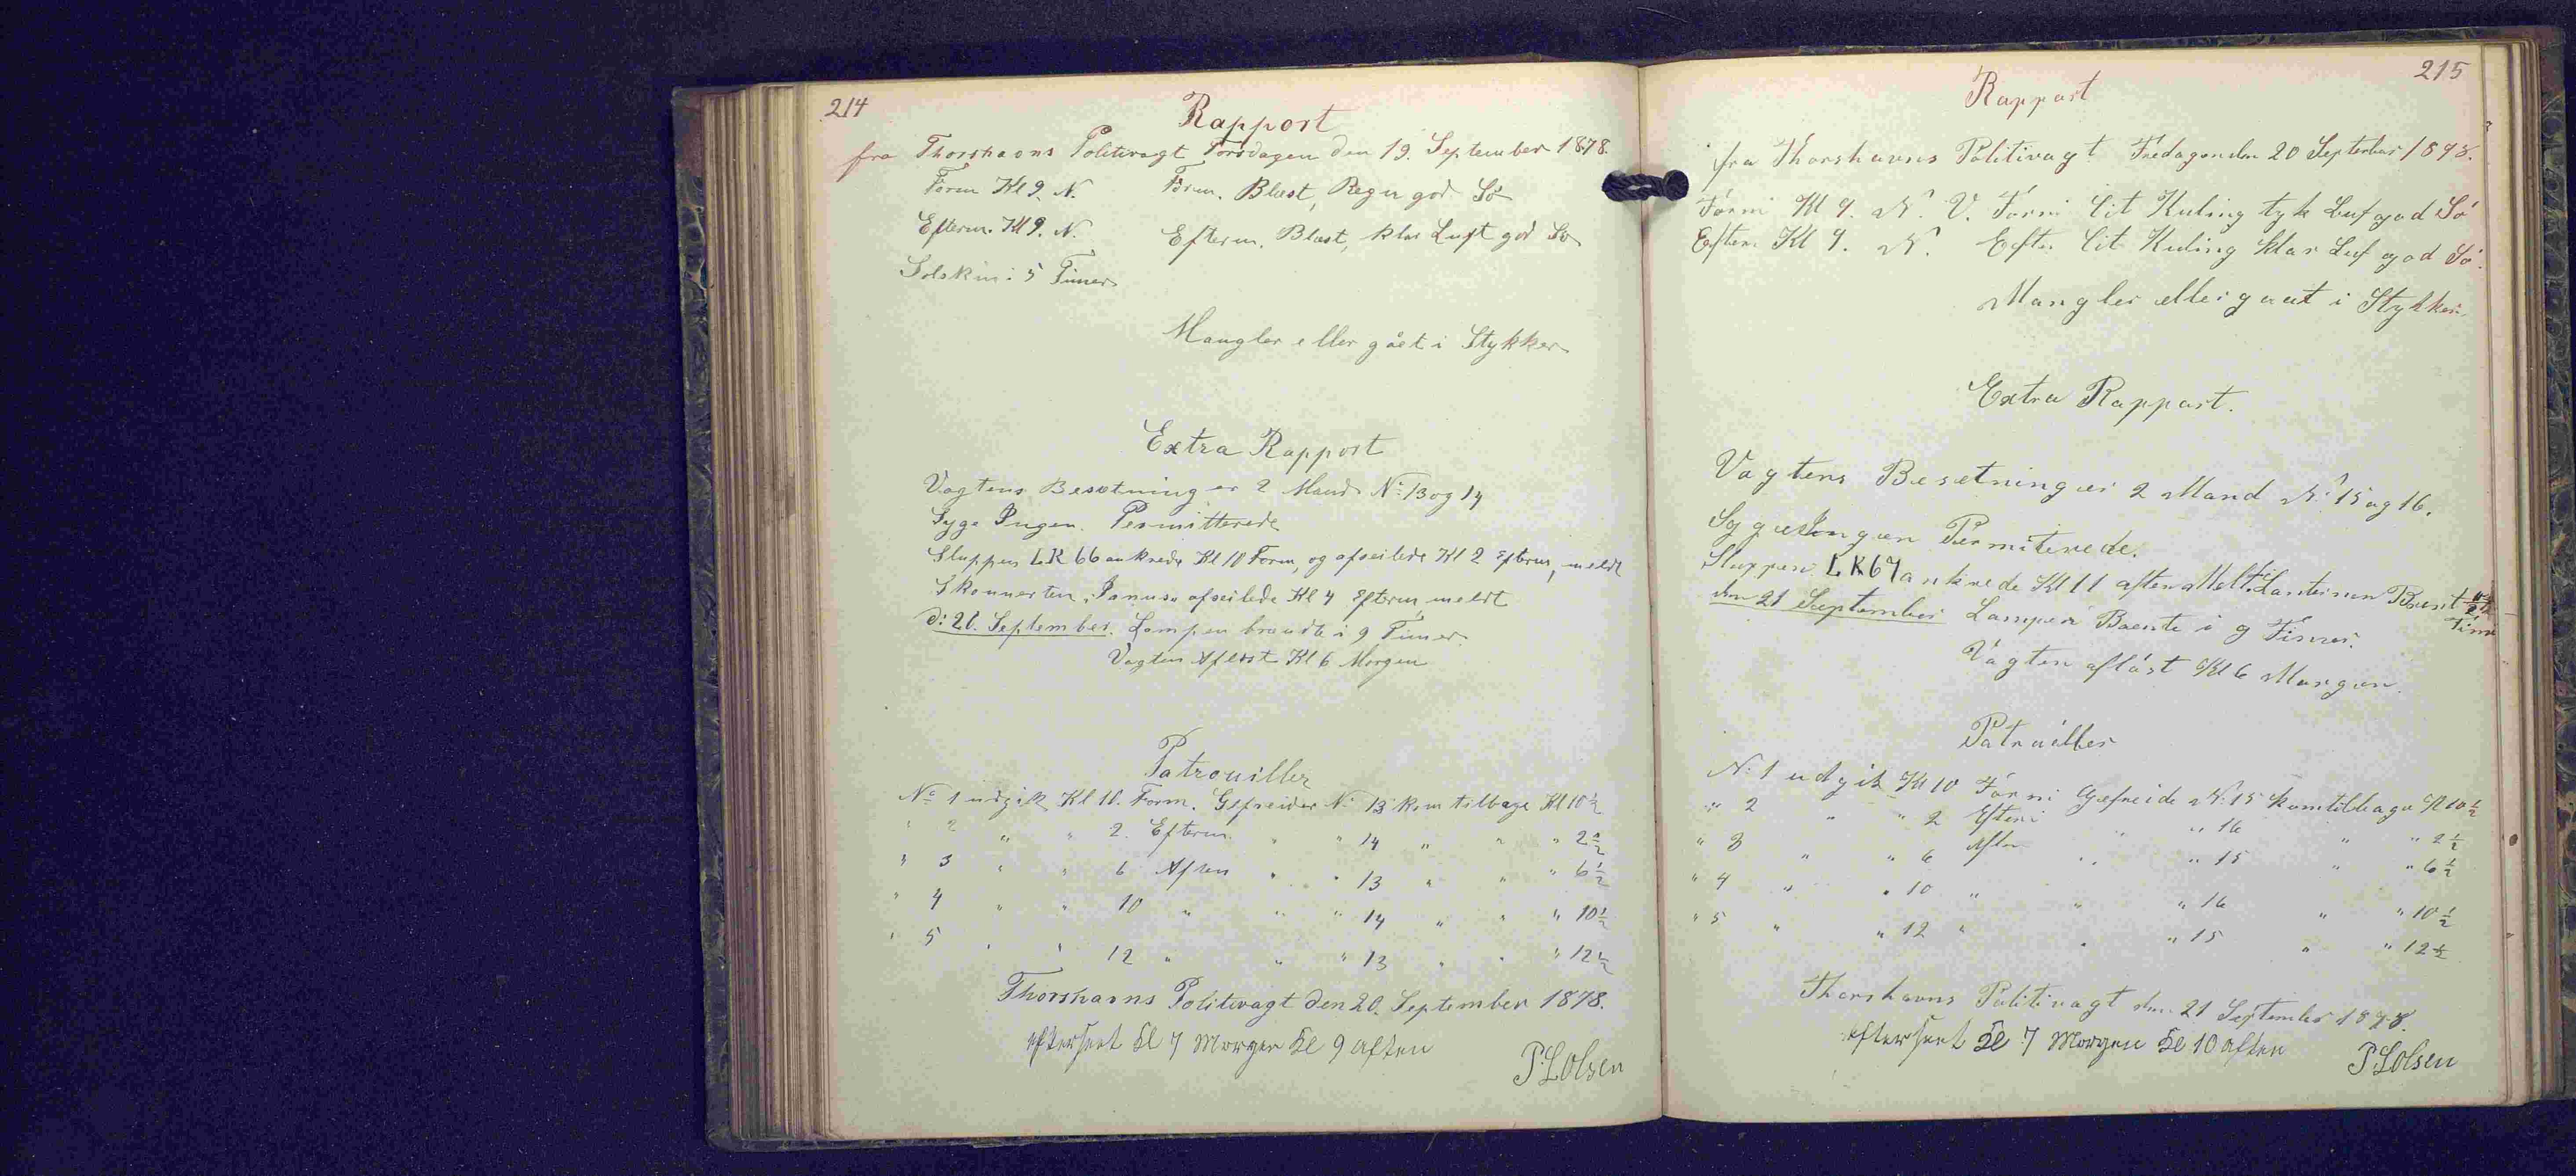 214
Rapport
fra Thorshavns Politivagt Torsdagen den 19. September 1878.
Form Kl 9. N. Form. Blæst, Regn god Sö
Efterm. Kl 9. N. Efterm. Blæst, klar Luft god Sö
Solskin i 5 Timer
Mangler eller gået i Stykker
Extra Rapport
Vagtens Besætning er 2 Mand No 13 og 14
Syge Ingen. Permitterede
Sluppen LK 66 ankrede Kl 10 Form, og afseilede Kl 2 Efterm, meldt
Skonnerten "Janus" afseilede Kl 4 Efterm, meldt
d: 20. September. Lampen brændte i 9 Timer.
Vagten Afløst Kl 6 Morgen
Patrouiller
No 1 udgik Kl 10. Form. Gefreider No 13 kom tilbage Kl 10½
" 2 " " 2. Efterm. " " 14 " " " 2½
" 3 " " 6 Aften " " 13 " " " 6½
" 4 " " 10 " " " 14 " " " 10½
" 5 " " 12 " " " 13 " " " 12½
Thorshavns Politivagt den 20. September 1878.
efterseet Kl 7 Morgen Kl 9 aften
P. L Olsen
215
Rapport
fra Thorshavns Politivagt Fredagen den 20 September 1878.
Form Kl 9. N. V. Form lit Kuling tyk Luf god Sö
Eftm Kl 9. N. Eft. lit Kuling klar Luf god Sö.
Mangler eller gaat i Stykker.
Extra Rapport.
Vagtens Besetning er 2 Mand No 15 og 16.
Syge Ingen Permiterede.
Sluppen LK 69 ankrede Kl 11 aften Meldt. Lanternen Brent
Timer
den 21 September Lampen Brente i 9 Timer.
Vagten aflöst Kl 6 Morgen.
Patruiller
No 1 udgik Kl 10 Form Gefreide No 15 kom tilbage Kl 10½
" 2 " " 2 Eftm " " 16 " " 2½
" 3 " " 6 Aften " " 15 " " 6½
" 4 " " 10 " " " 16 " " 10½
" 5 " " 12 " " " 15 " " 12½
Thorshavns Politivagt den 21 September 1878.
efterseet Kl 7 Morgen Kl 10 aften
P. L Olsen